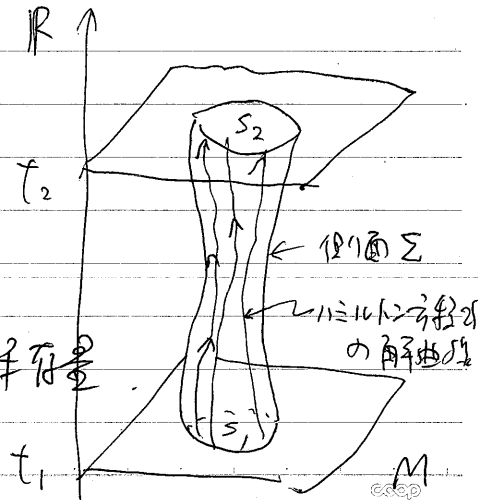 ℝ
S₂
t₂
側面 Σ
ハミルトン方程式
の解曲線
存量
S₁
t₁
M
coop